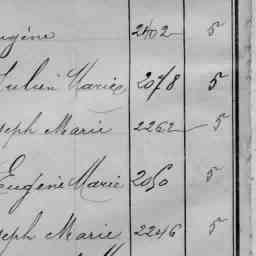 ugéne 2402 5
Julien Marie 2078 5
seph Marie 2262 5
Eugéne Marie 2050 5
seph Marie 2246 5